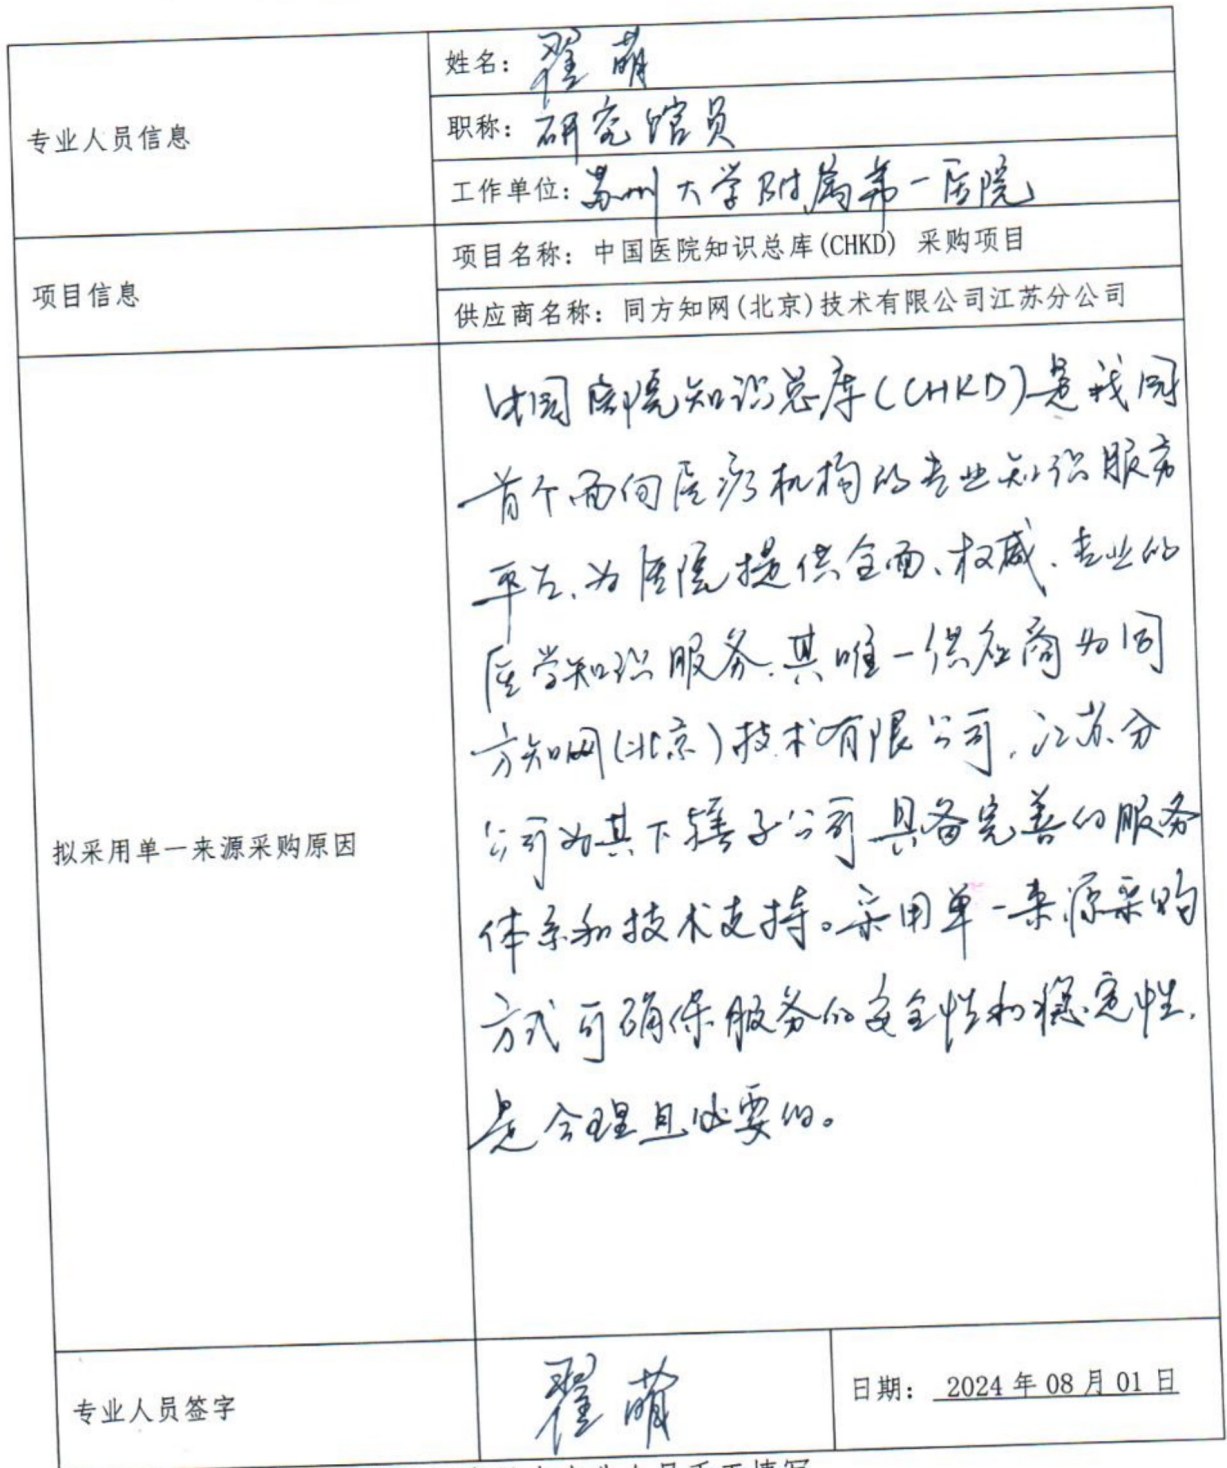 姓名：翟萌
专业人员信息
职称：研究馆员
工作单位：苏州大学附属第一医院
项目信息
项目名称：中国医院知识总库(CHKD) 采购项目
供应商名称：同方知网(北京)技术有限公司江苏分公司
拟采用单一来源采购原因
中国医院知识总库(CHKD)是我国
首个面向医疗机构的专业知识服务
平台、为医院提供全面、权威、专业的
医学知识服务.其唯一供应商为同
方知网(北京)技术有限公司,江苏分
公司为其下辖子公司 具备完善的服务
体系和技术支持。采用单一来源采购
方式可确保服务的安全性和稳定性,
是合理且必要的。
专业人员签字
翟萌
日期：2024年08月01日